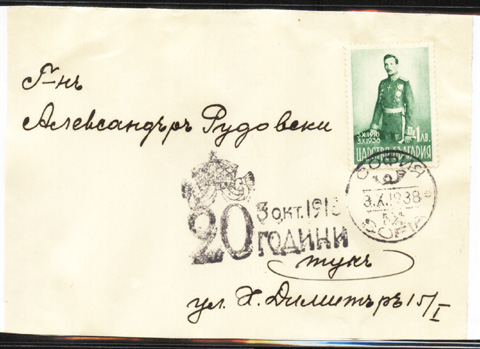 Г-нъ
Александъръ Рудовски
3.X.1918
3.X.1938
1 лв.
ЦАРСТВО БЪЛГАРИЯ
СОФИЯ
3.X.1938
SOFIA
3 окт. 1918
20 ГОДИНИ
тукъ
ул. Х. Димитъръ 15/I